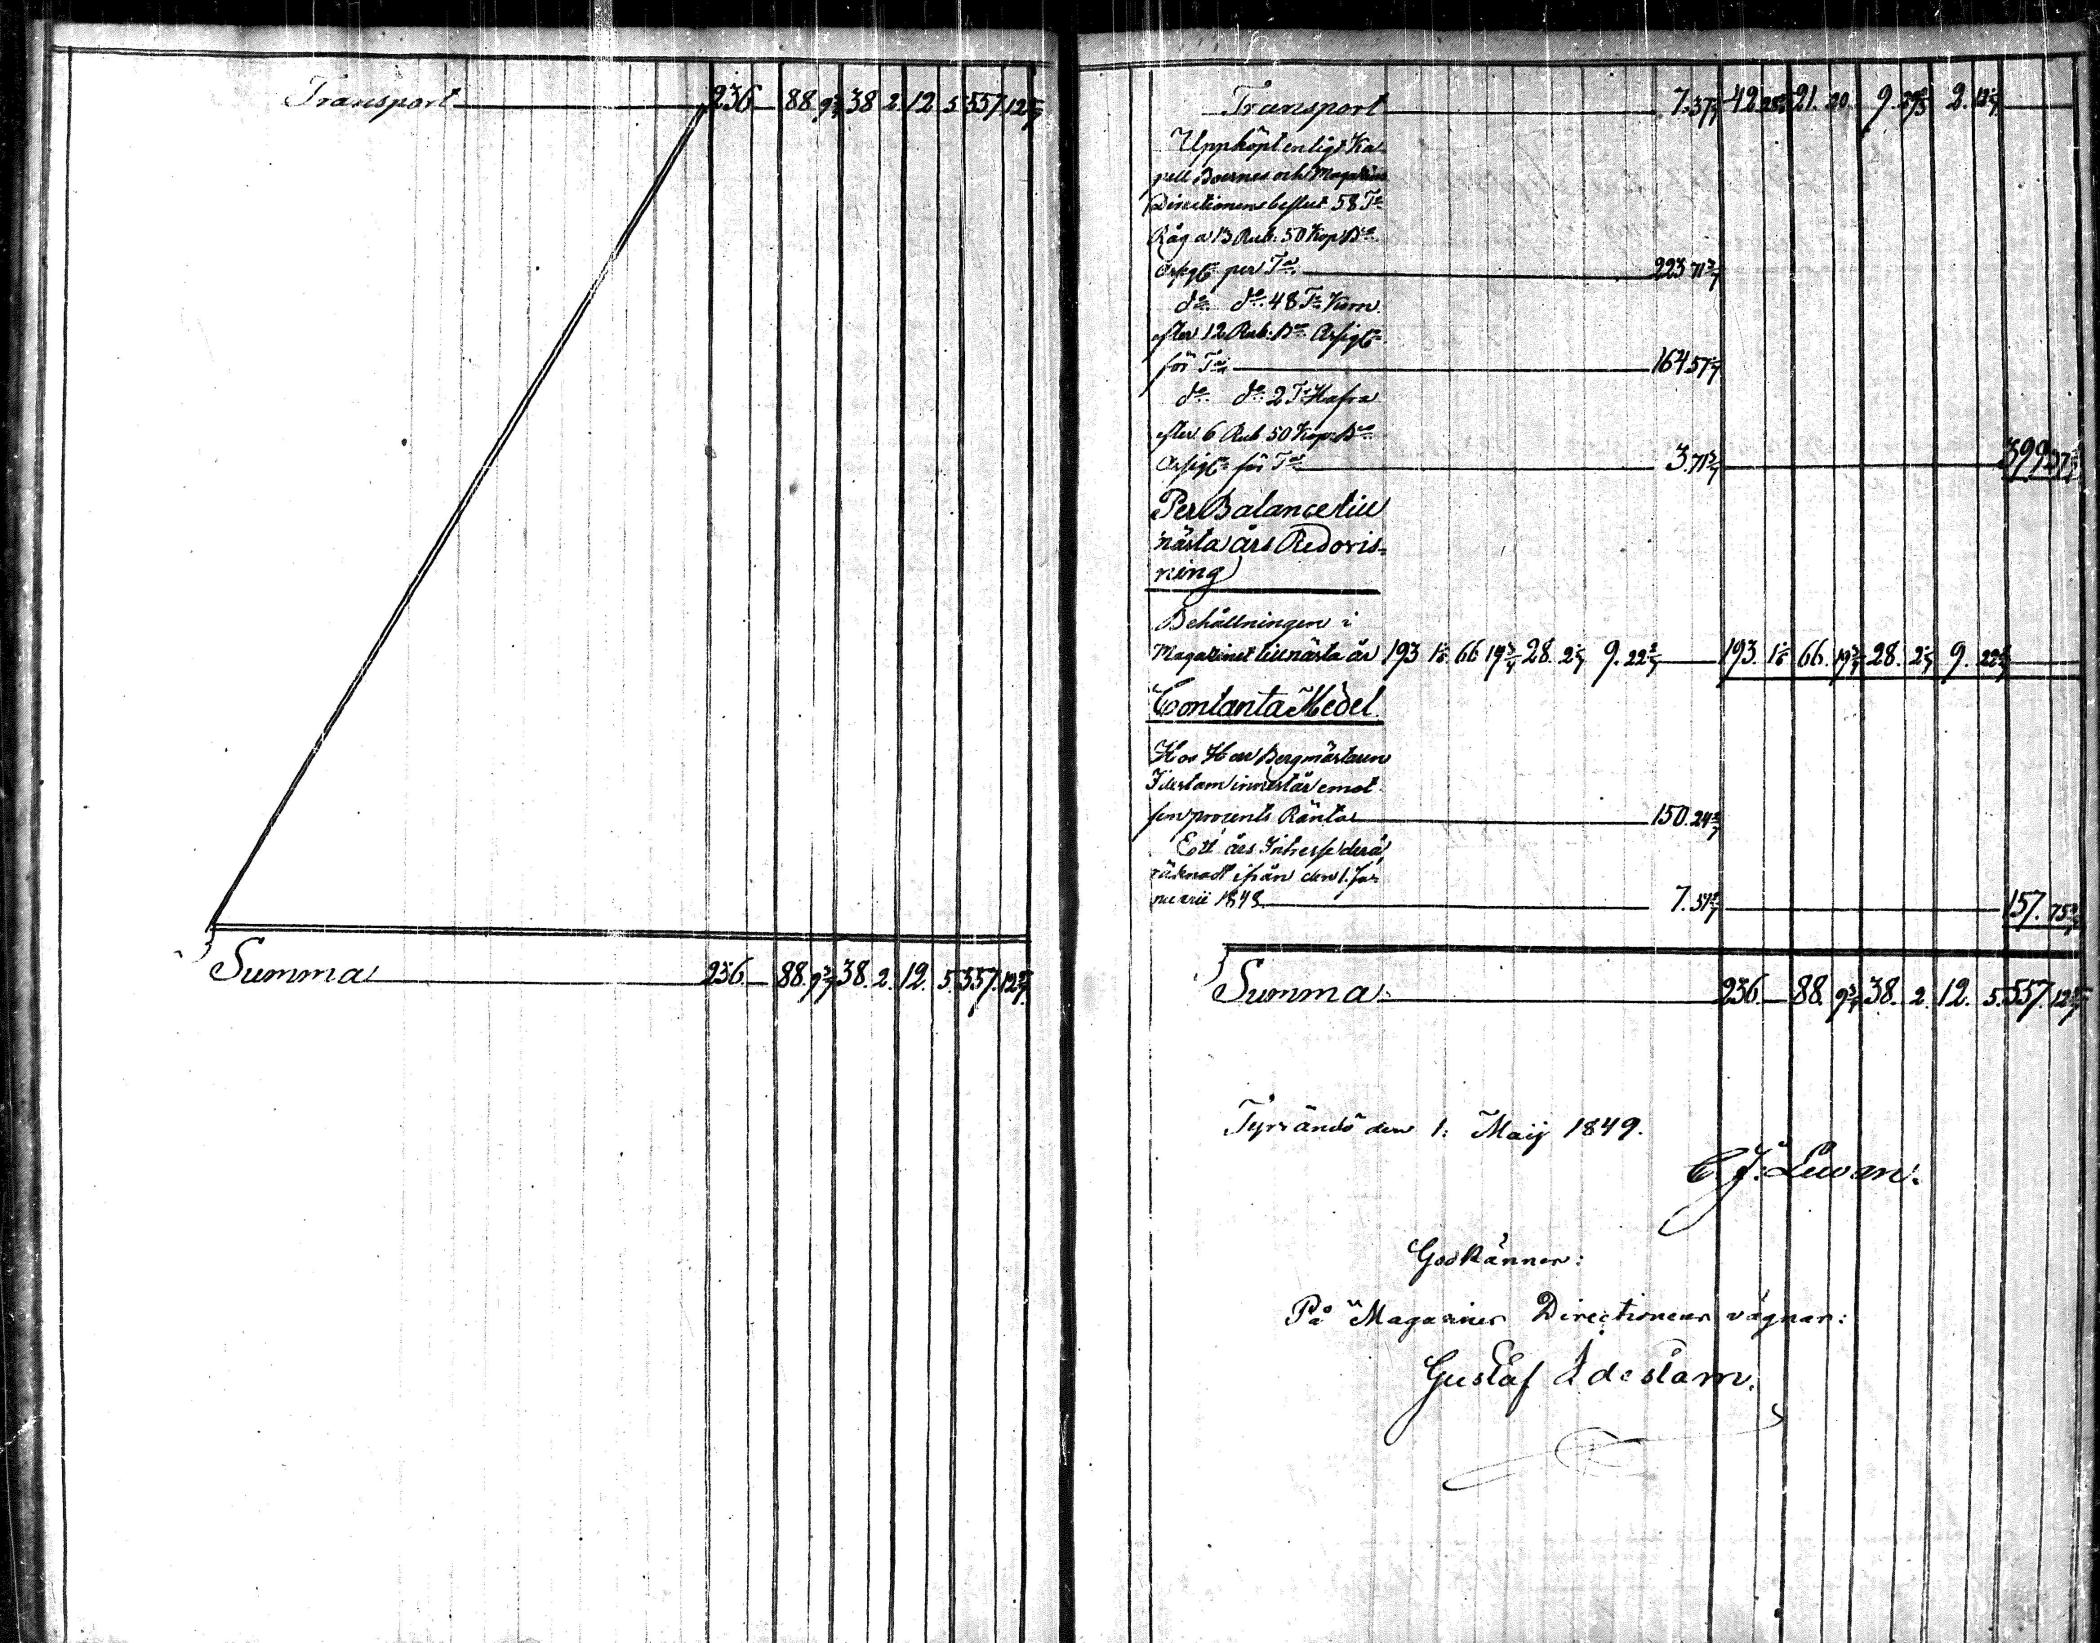 Transport 236 — 88. 9 3/7 38 2. 12 5. 557. 12 6/7
Summa 236. — 88. 9 3/7 38. 2. 12. 5. 557. 12 6/7
Transport 7. 37 42. 21. 20. 9. 2.
Upphöpt enligt Ka-
pell Boernes och Magasins
Directionens beslut 58 Tr
Råg a 13 Rub. 50 Kop Bco
Assigt per Ta 223 71 3/7
do do 48 Tr Korn
efter 12 Rub. Bco Assigt
för Ta 164 57 1/7
do do 2 Tr Hafra
efter 6 Rub 50 Kop. Bco
Assigt för Ta 3. 71 3/7 399. 37
Per Balance till
nästa års Redovis-
ning
Behållningen i
Magazinet till nästa år 193 66 19 3/7 28. 2 9. 22 193. 66. 19 3/7 28. 2 9. 22
Contanta Medel
Hos Herr Bergmästaren
Idestam innestår emot
fem procents Ränta 150. 24
Ett års Intresse derå,
räknadt ifrån den 1. Ja-
nuarii 1848. 7. 51 157. 75
Summa 236. — 88. 9 3/7 38. 2. 12. 5. 557. 12 6/7
den 1. Maij 1849.
C. J. Lewan.
Godkännes:
På Magasines Directionens vägnar:
Gustaf Idestam.